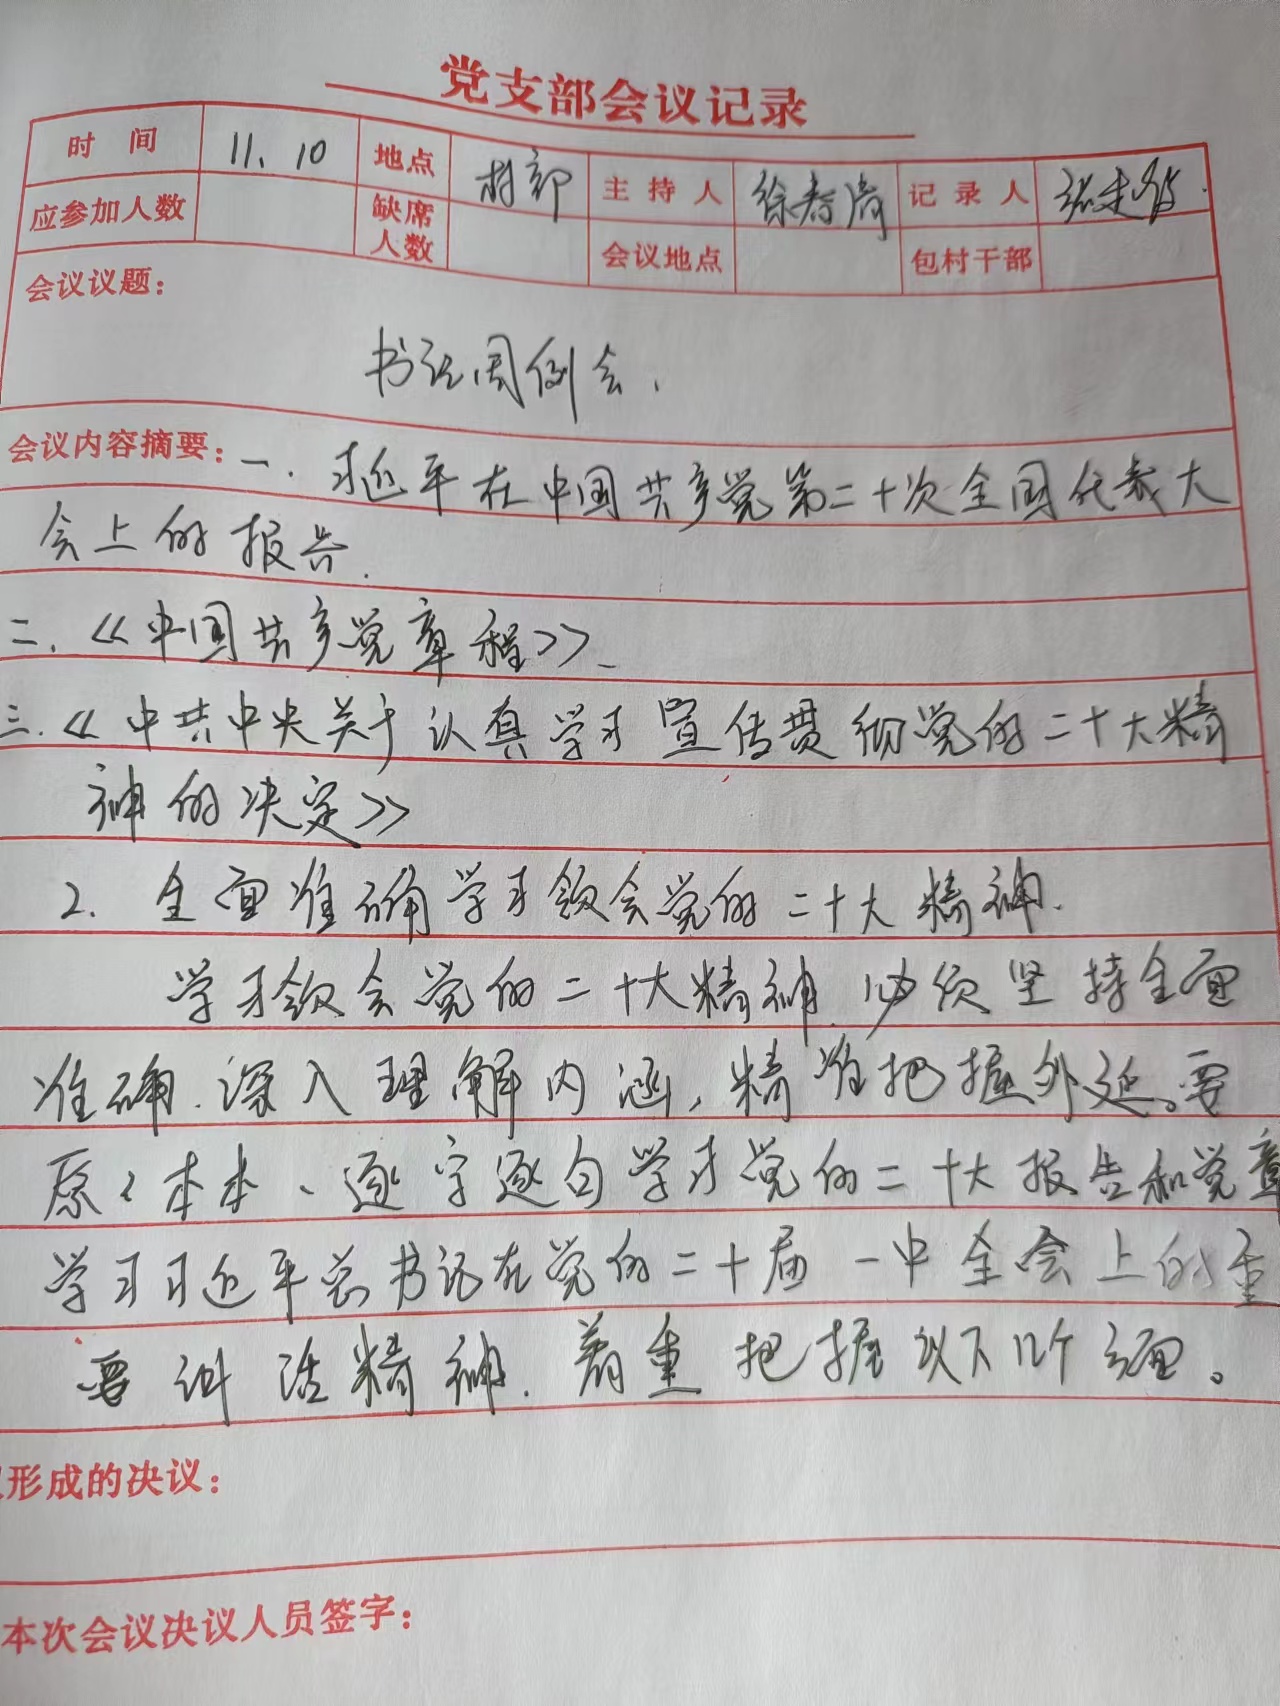 党支部会议记录
时间 11.10 地点 村部 主持人 徐寿尚 记录人
应参加人数 缺席人数 会议地点 包村干部
会议议题：
书记周例会.
会议内容摘要：一.习近平在中国共产党第二十次全国代表大
会上的报告.
二.《中国共产党章程》、
三.《中共中央关于认真学习宣传贯彻党的二十大精
神的决定》
2.全面准确学习领会党的二十大精神.
学习领会党的二十大精神.必须坚持全面
准确.深入理解内涵,精准把握外延。要
原々本本、逐字逐句学习党的二十大报告和党章
学习习近平总书记在党的二十届一中全会上的重
要讲话精神.着重把握以下几个方面。
形成的决议：
本次会议决议人员签字：